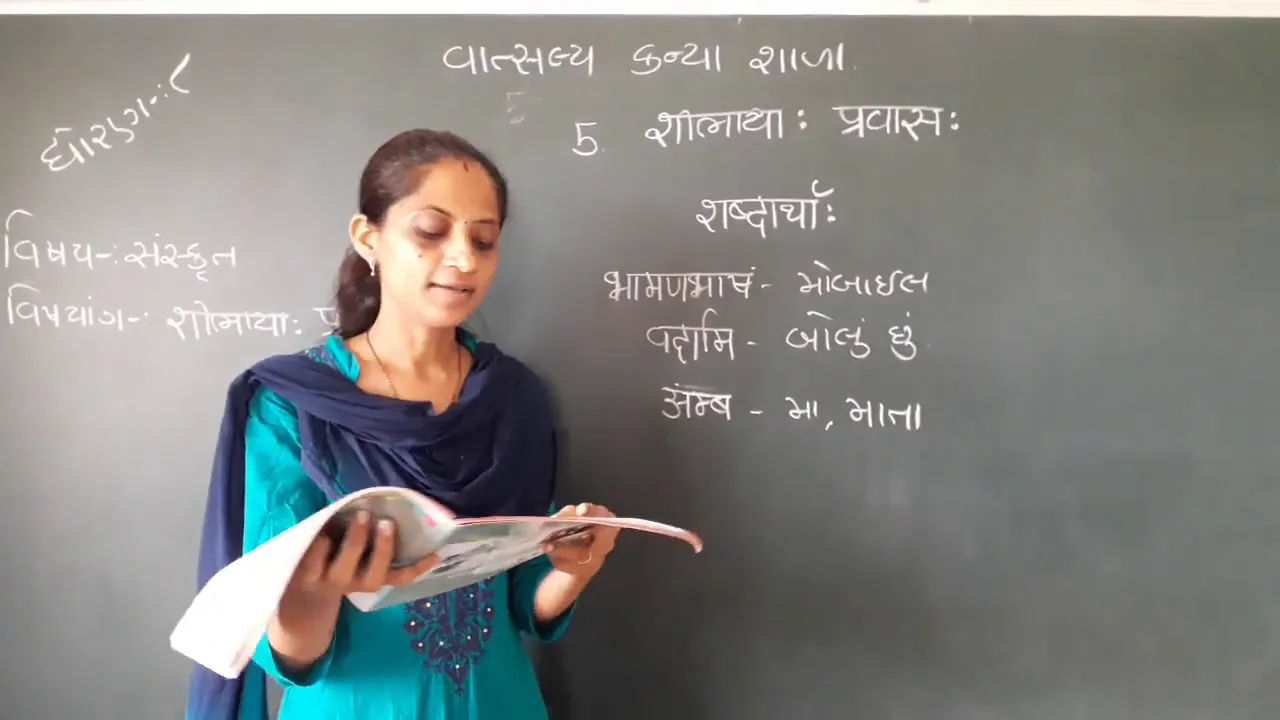 વાત્સલ્ય કન્યા શાળા.
ધોરણ-:૮
5. शोभायाः प्रवासः
शब्दार्थाः
વિષય-: સંસ્કૃત
વિષયાંગ-: शोभायाः प्र
भ्रामणभाषं - મોબાઇલ
वदामि - બોલું છું.
अम्ब - મા, માતા